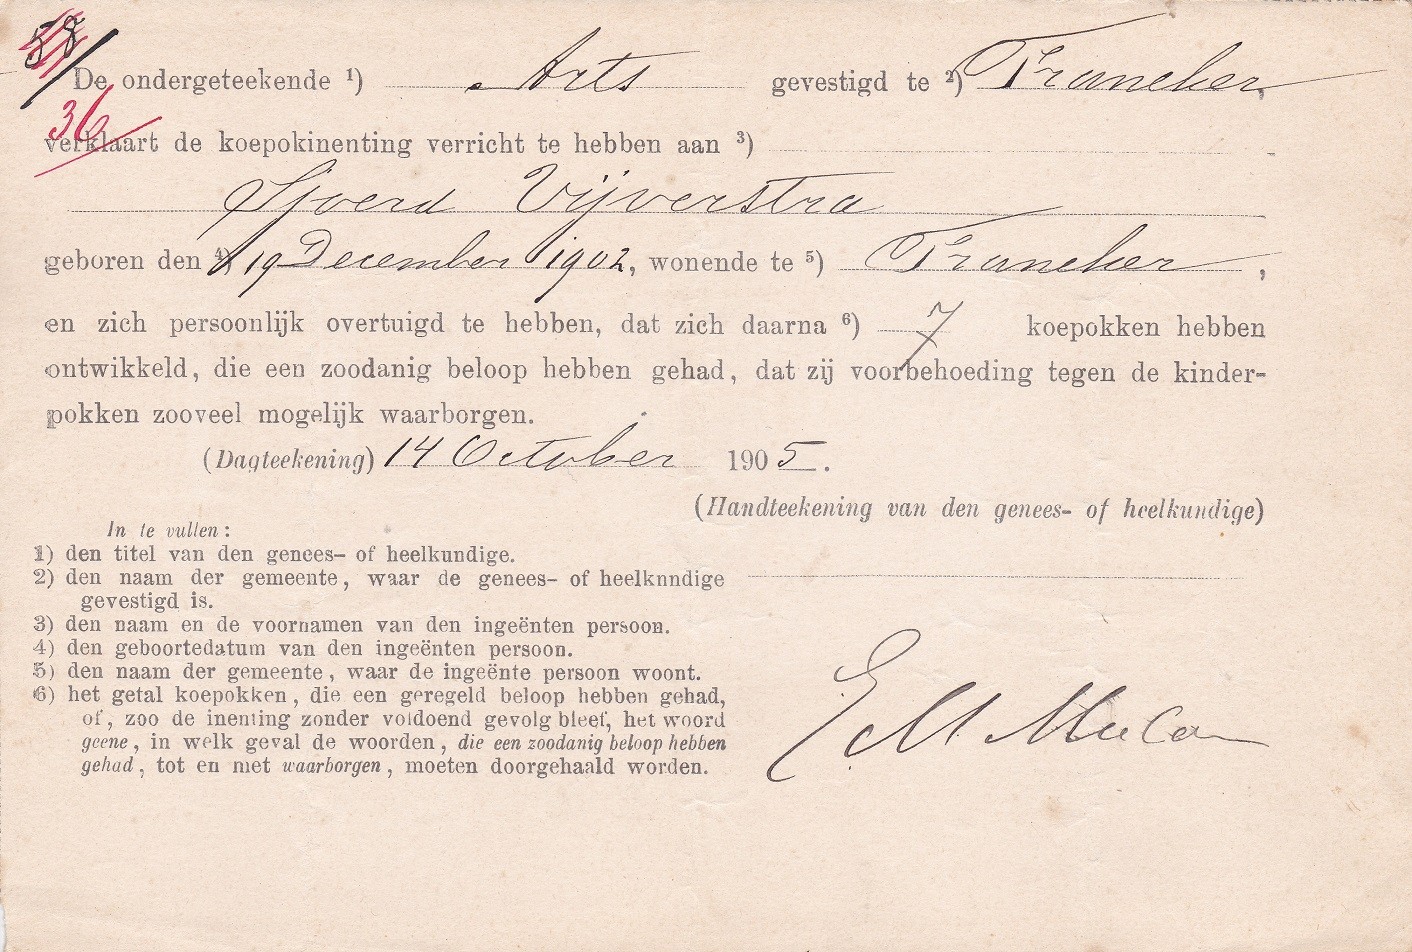 58
36
De ondergeteekende ¹) Arts gevestigd te ²) Franeker,
verklaart de koepokinenting verricht te hebben aan ³)
Sjoerd Vijverstra
geboren den ⁴) 19 December 1902, wonende te ⁵) Franeker,
en zich persoonlijk overtuigd te hebben, dat zich daarna ⁶) 7 koepokken hebben
ontwikkeld, die een zoodanig beloop hebben gehad, dat zij voorbehoeding tegen de kinder-
pokken zooveel mogelijk waarborgen.
(Dagteekening) 14 October 1905.
(Handteekening van den genees- of heelkundige)
In te vullen:
1) den titel van den genees- of heelkundige.
2) den naam der gemeente, waar de genees- of heelknndige
gevestigd is.
3) den naam en de voornamen van den ingeënten persoon.
4) den geboortedatum van den ingeënten persoon.
5) den naam der gemeente, waar de ingeënte persoon woont.
6) het getal koepokken, die een geregeld beloop hebben gehad,
of, zoo de inenting zonder voldoend gevolg bleef, het woord
geene, in welk geval de woorden, die een zoodanig beloop hebben
gehad, tot en met waarborgen, moeten doorgehaald worden.